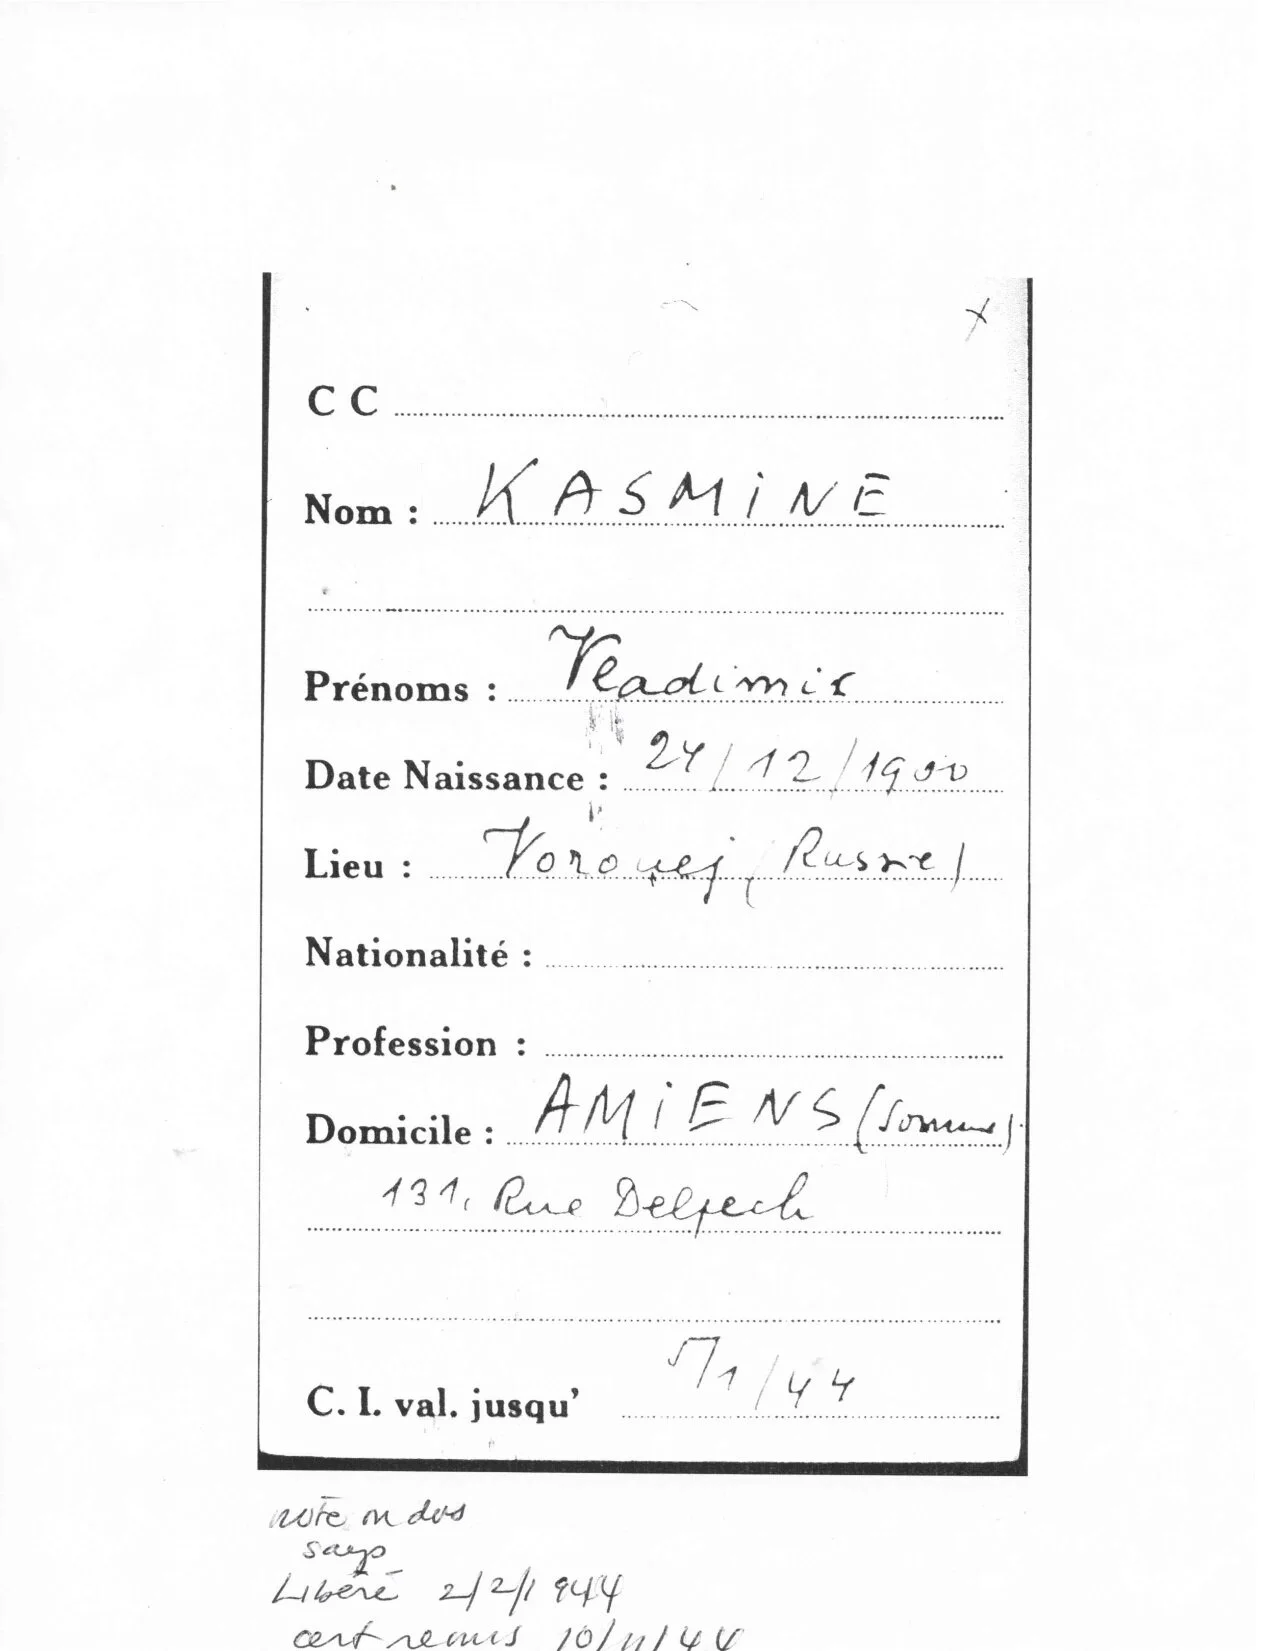 C C
Nom : KASMiNE
Prénoms : Vladimir
Date Naissance : 24/12/1900
Lieu : Voronej (Russie)
Nationalité :
Profession :
Domicile : AMiENS (Somme)
131, Rue Delpech
C. I. val. jusqu' 5/1/44
note on dos
says
Libéré 2/2/1944
cert remis 10/11/44